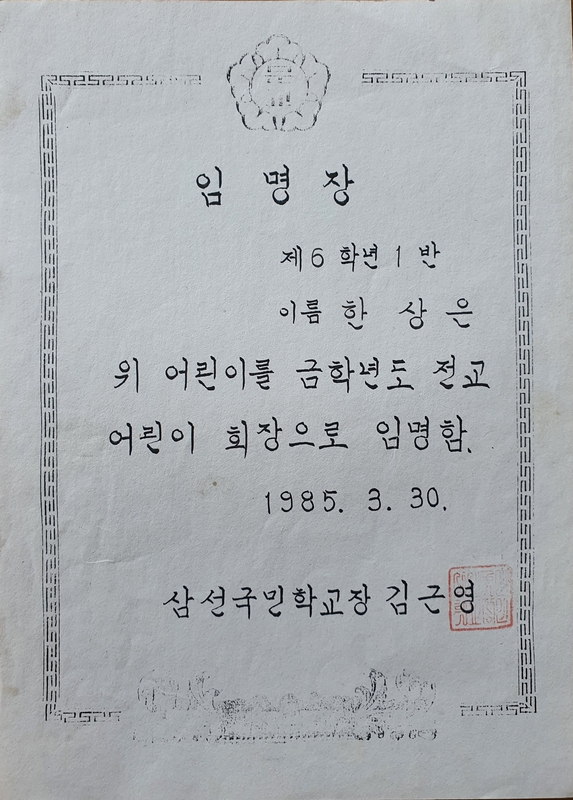 임 명 장
제6 학년 1 반
이름 한 상 은
위 어린이를 금학년도 전교
어린이 회장으로 임명함.
1985. 3. 30.
삼선국민학교장 김근영